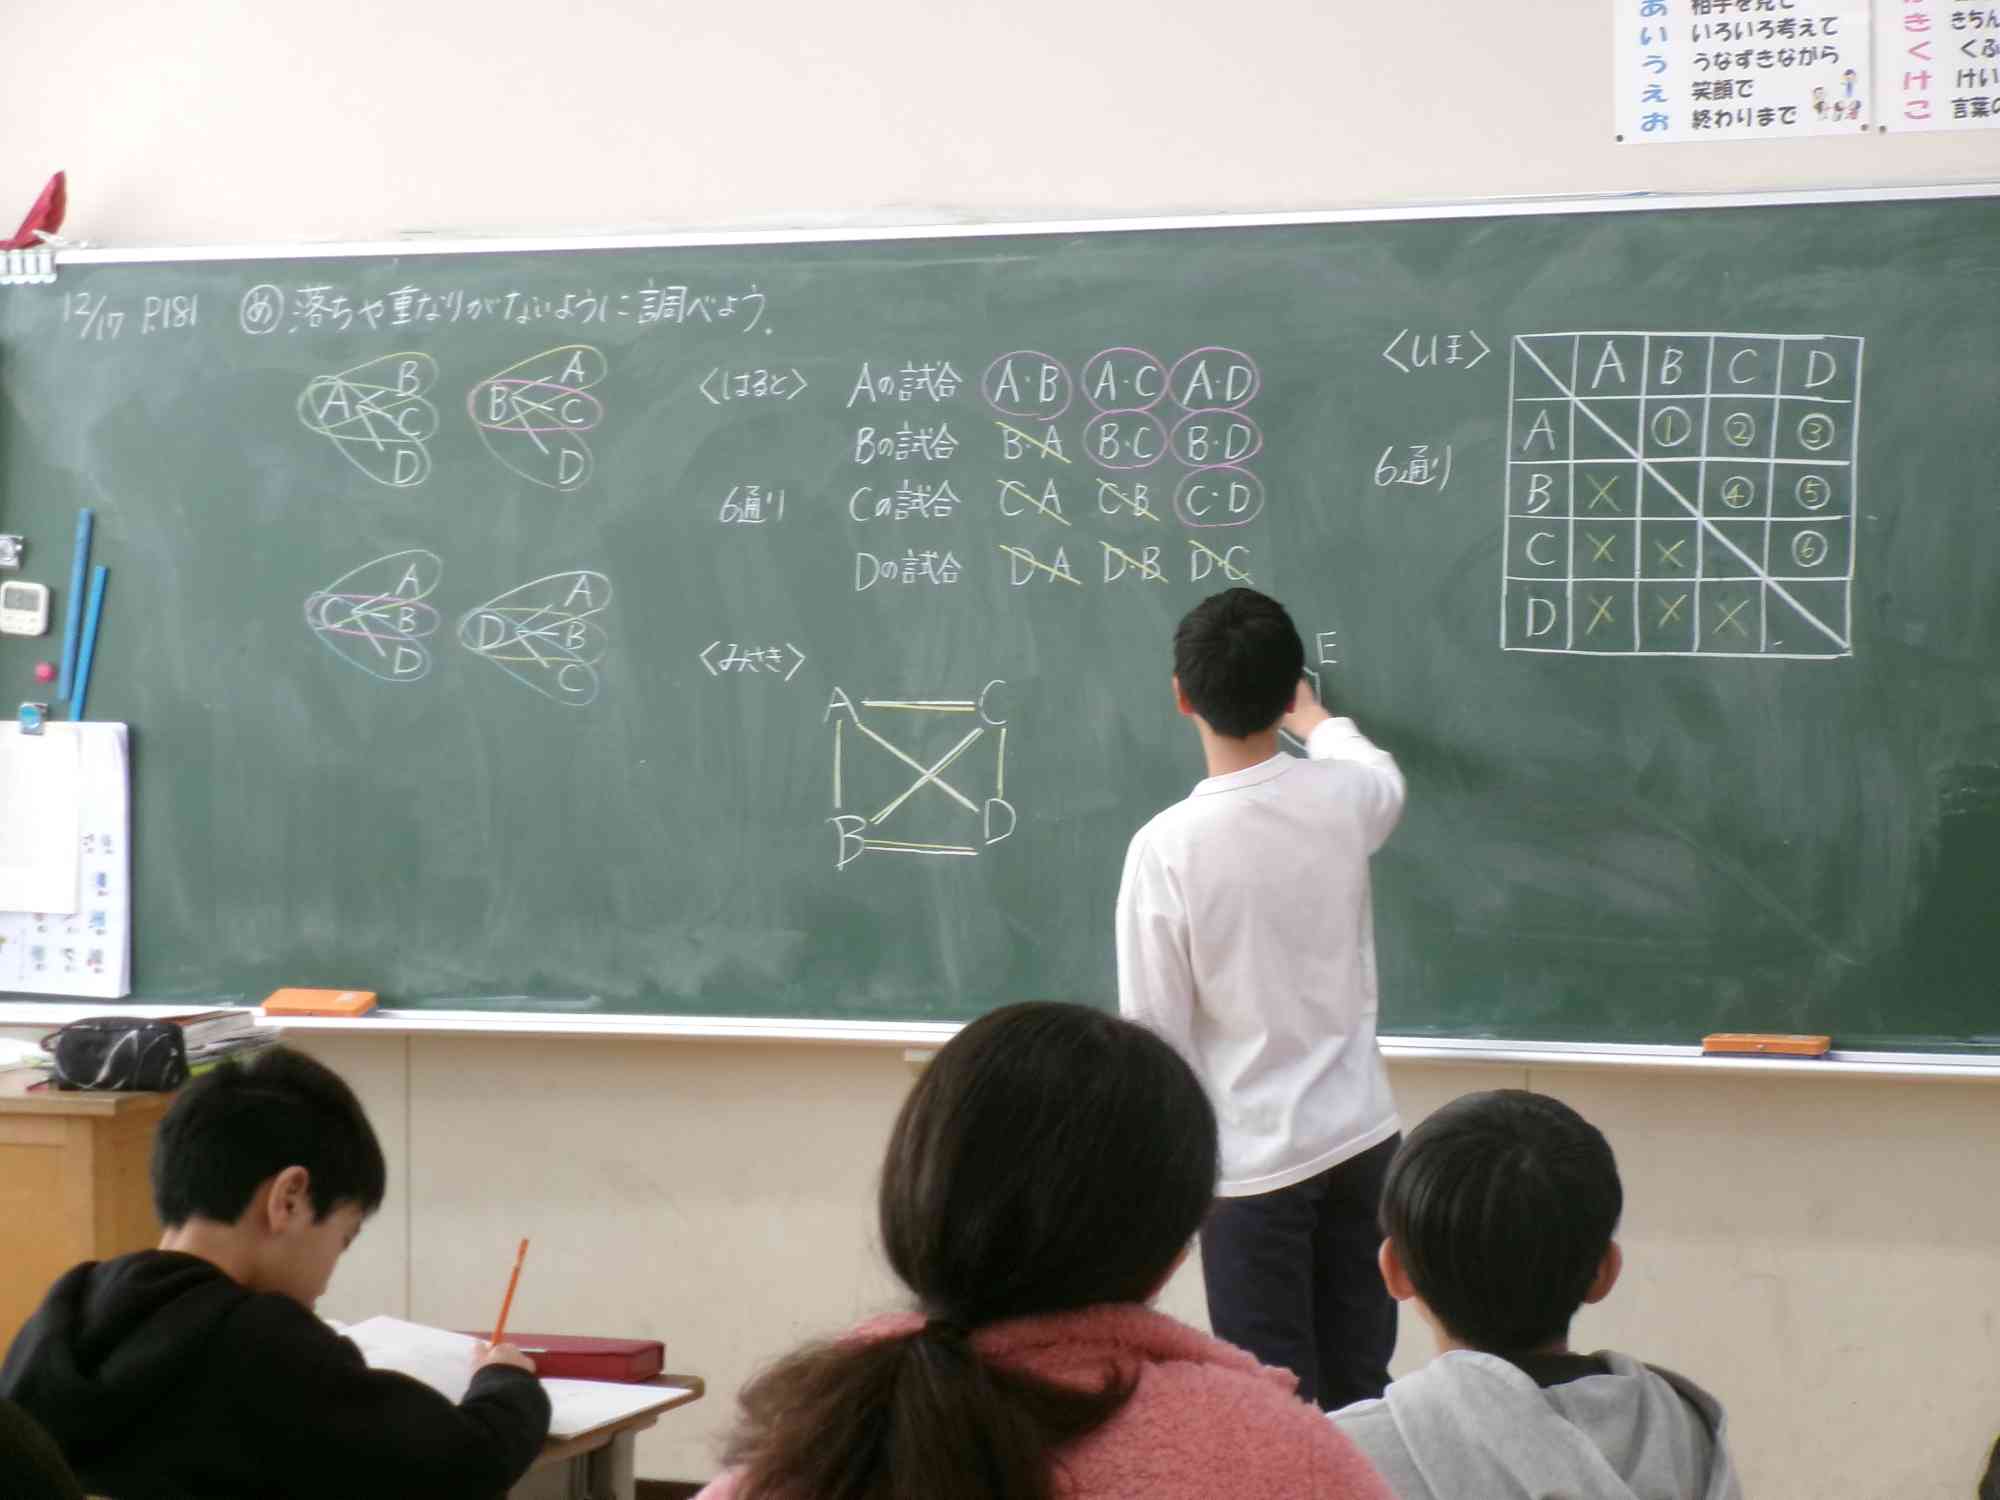 あ 相手を見て
い いろいろ考えて
う うなずきながら
え 笑顔で
お 終わりまで
き きちん
く くふ
け けい
こ 言葉の
12/17 P.181 め 落ちや重なりがないように調べよう。
A B C D
B A C D
C A B D
D A B C
〈はると〉
6通り
Aの試合 A・B A・C A・D
Bの試合 B・A B・C B・D
Cの試合 C・A C・B C・D
Dの試合 D・A D・B D・C
〈みさき〉
A C
B D
E
〈しほ〉
6通り
A B C D
A ① ② ③
B × ④ ⑤
C × × ⑥
D × × ×